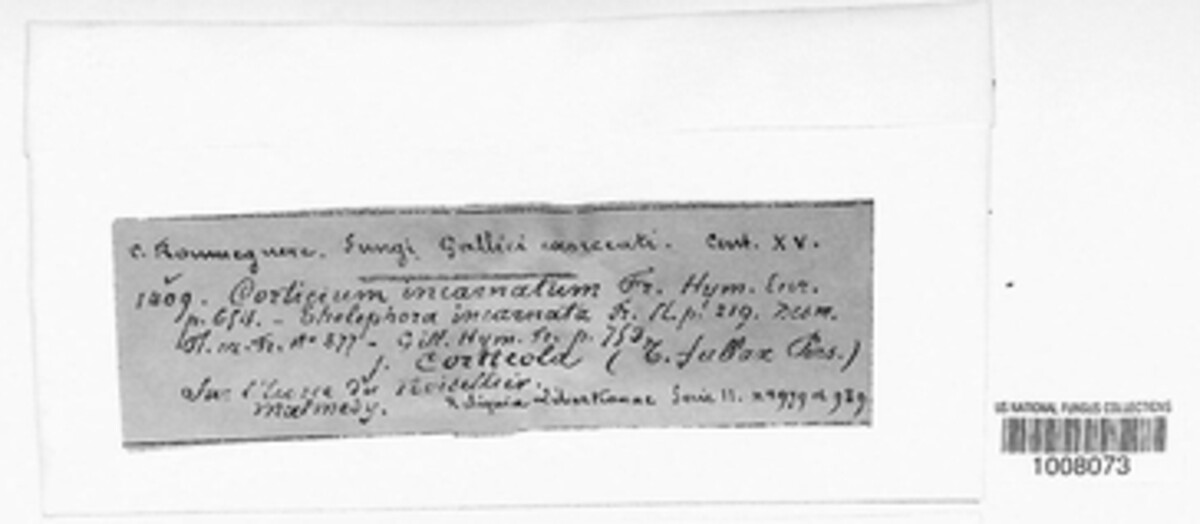 C. Roumeguère. Fungi Gallici exsiccati. Cent. XV.
1409. Corticium incarnatum Fr. Hym. Eur.
p. 654. - Thelephora incarnata Fr. El. p. 219. Desm.
Pl. cr. Fr. No 877 - Gill. Hym. Fr. p. 753
f. Corticola (T. fallax Pers.)
Sur l'écorce du Noisettier.
Malmedy. Libertianae Serie II. n 979 et 989
US NATIONAL FUNGUS COLLECTIONS
1008073